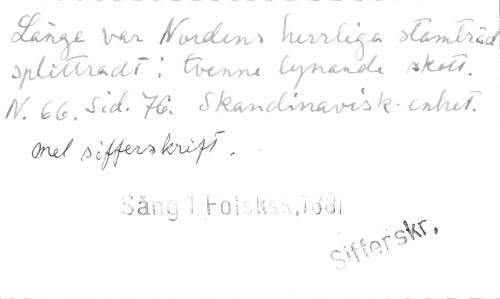 Länge var Nordens herrliga stamträd
splittradt i tvenne lynande skott.
N. 66. Sid. 76. Skandinavisk enhet.
mel sifferskrift.
Sång 1 Folsksk,1881
Sifferskr.